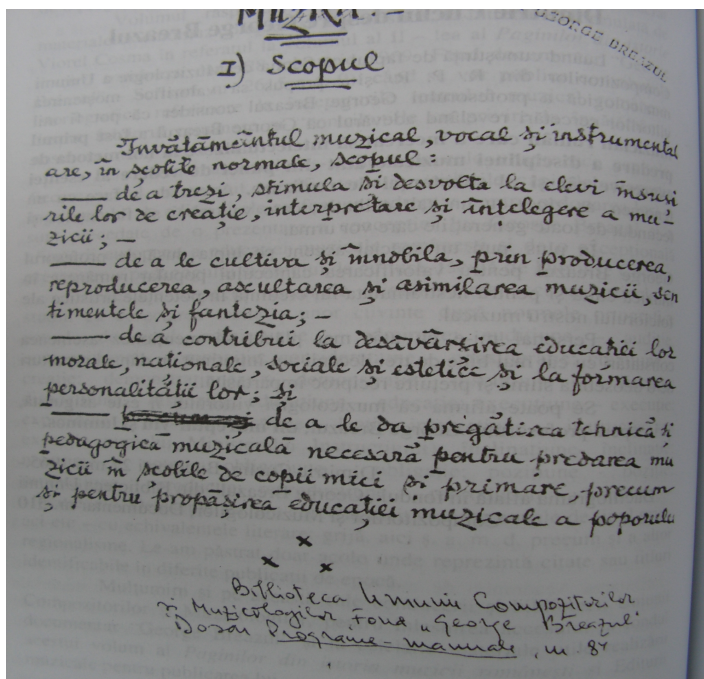 MUZICA. -
GEORGE BREAZUL
I) Scopul
Învătământul muzical, vocal și instrumental
are, în școlile normale, scopul:
___ de a trezi, stimula și desvolta la elevi însuși
rile lor de creație, interpretare și înțelegere a mu-
zicii; -
___ de a le cultiva și înnobila, prin producerea,
reproducerea, ascultarea și asimilarea muzicii, sen
timentele și fantezia; -
___ de a contribui la desăvârșirea educației lor
morale, naționale, sociale și estetice și la formarea
personalității lor; și
___ de a le da pregătirea tehnică și
pedagogică muzicală necesară pentru predarea mu
zicii în școlile de copii mici și primare, precum
și pentru propășirea educației muzicale a poporului
x x x
Biblioteca Uniunii Compozitorilor
și Muzicologilor Fond „George Breazul"
Dosar Programe - manuale, nr 84